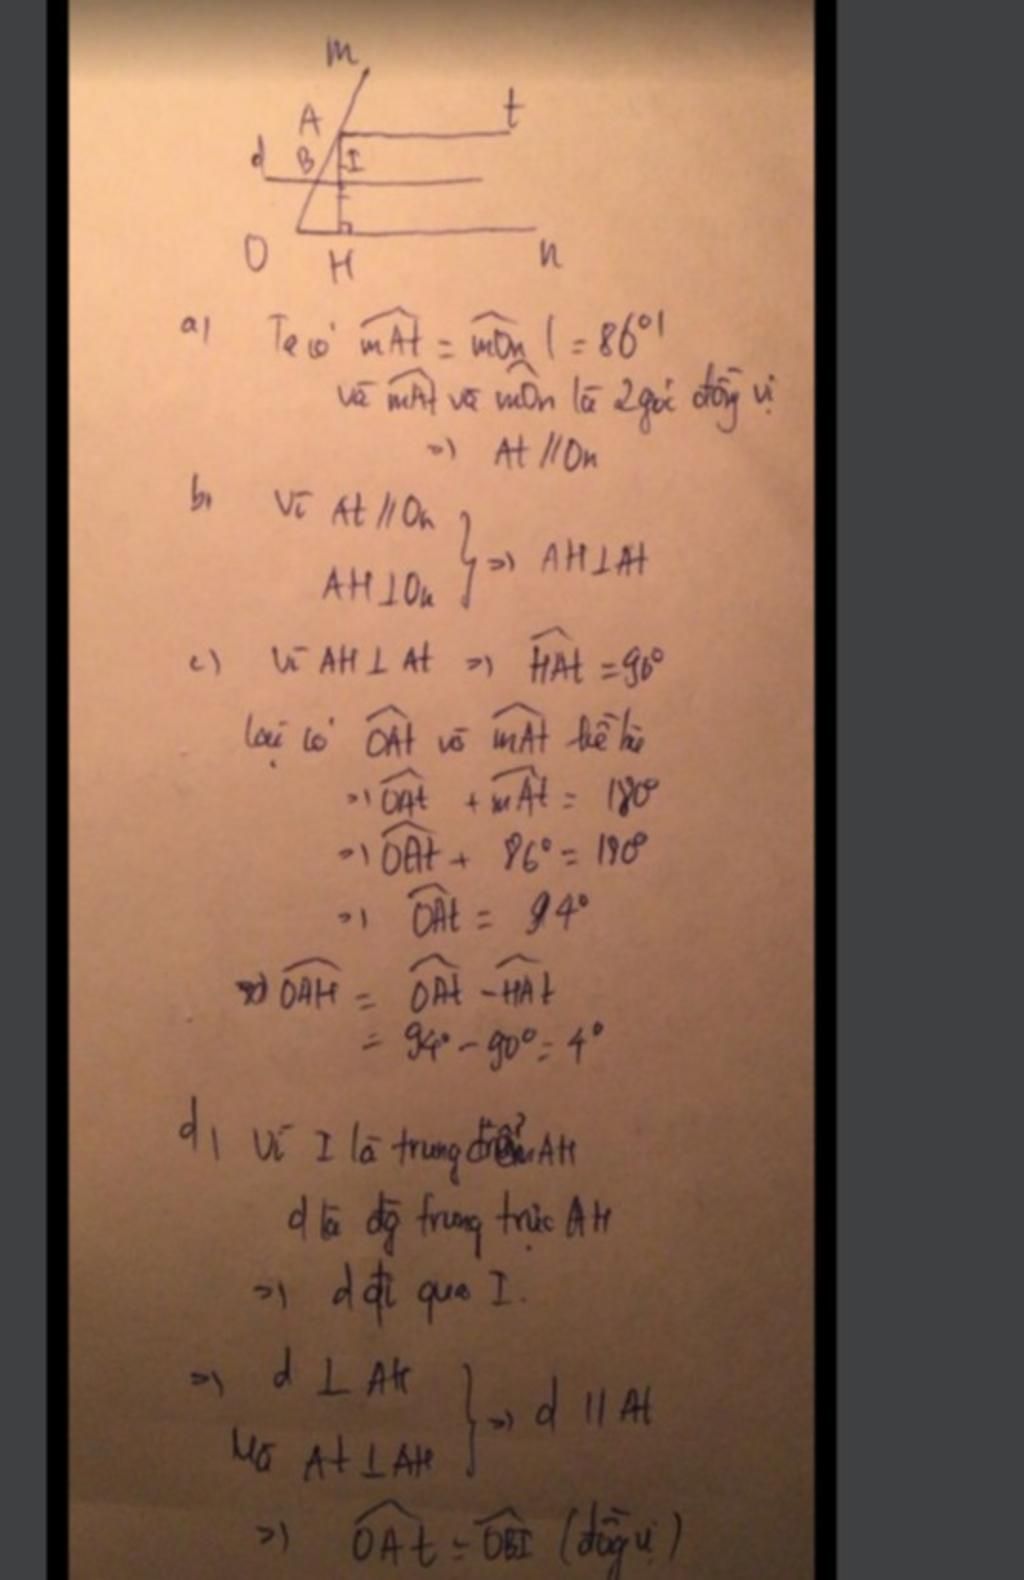 m
A
t
d
B
I
O
H
n
a) Ta có mAt = mOn (= 86°)
và mAt và mOn là 2 góc đồng vị
=> At // On
b, Vì At // On
AH ⊥ On
=> AH ⊥ At
c) Vì AH ⊥ At => HAt = 90°
Lại có OAt và mAt kề bù
=> OAt + mAt = 180°
=> OAt + 86° = 180°
=> OAt = 94°
=> OAH = OAt - HAt
= 94° - 90° = 4°
d, Vì I là trung điểm AH
d là đg trung trực AH
=> d đi qua I.
=> d ⊥ AH
Mà At ⊥ AH
=> d // At
=> OAt = OBI (đồng vị)